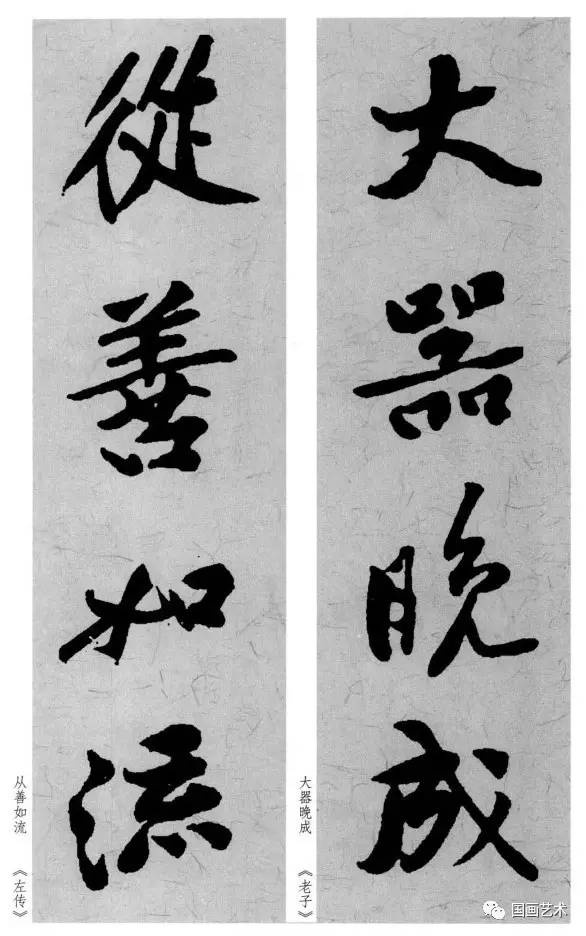 大器晚成
大器晚成 《老子》
從善如流
从善如流 《左传》
国画艺术